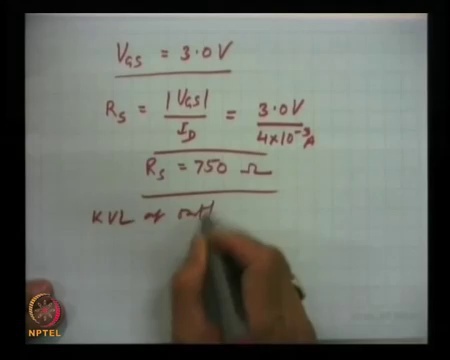 V_GS = 3.0V
R_S = |V_GS| / I_D = 3.0V / 4×10⁻³A
R_S = 750 Ω
KVL at
NPTEL